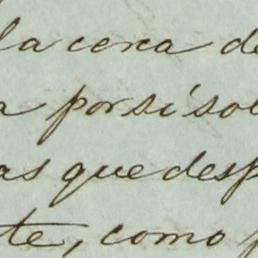 la cerca de
a por si sol
as que desp
te, como p